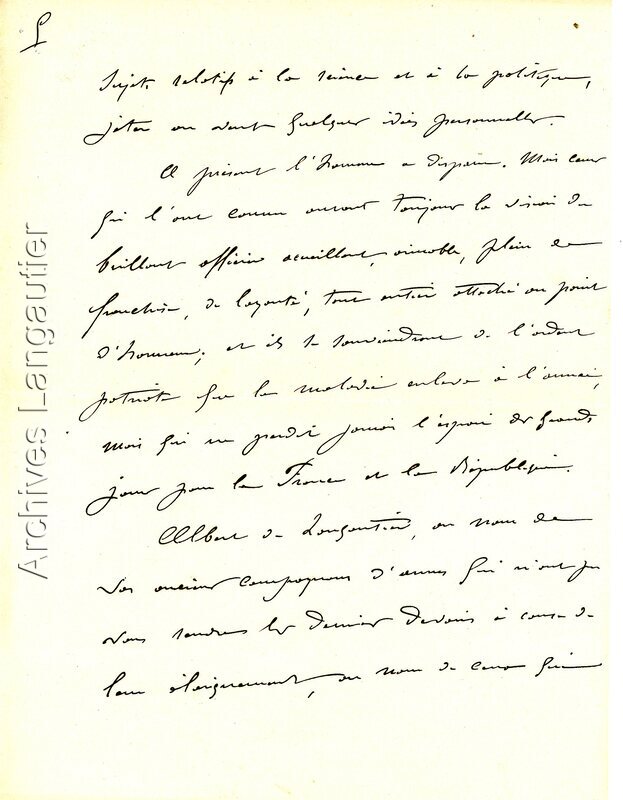 5
sujets relatifs à la science et à la politique,
jeter en avant quelques idées personnelles.
A présent l'homme a disparu. Mais ceux
qui l'ont connu auront toujours la vision du
brillant officier accueillant, aimable, plein de
franchise, de loyauté, tout entier attaché au point
d'honneur; et ils se souviendront de l'ardent
patriote que la maladie enleva à l'armée,
mais qui ne perdit jamais l'espoir des grands
jours pour la France et la République.
Albert de Langautier, au nom de
vos anciens compagnons d'armes qui n'ont pu
vous rendre les derniers devoirs à cause de
leur éloignement, au nom de ceux qui
Archives Langautier